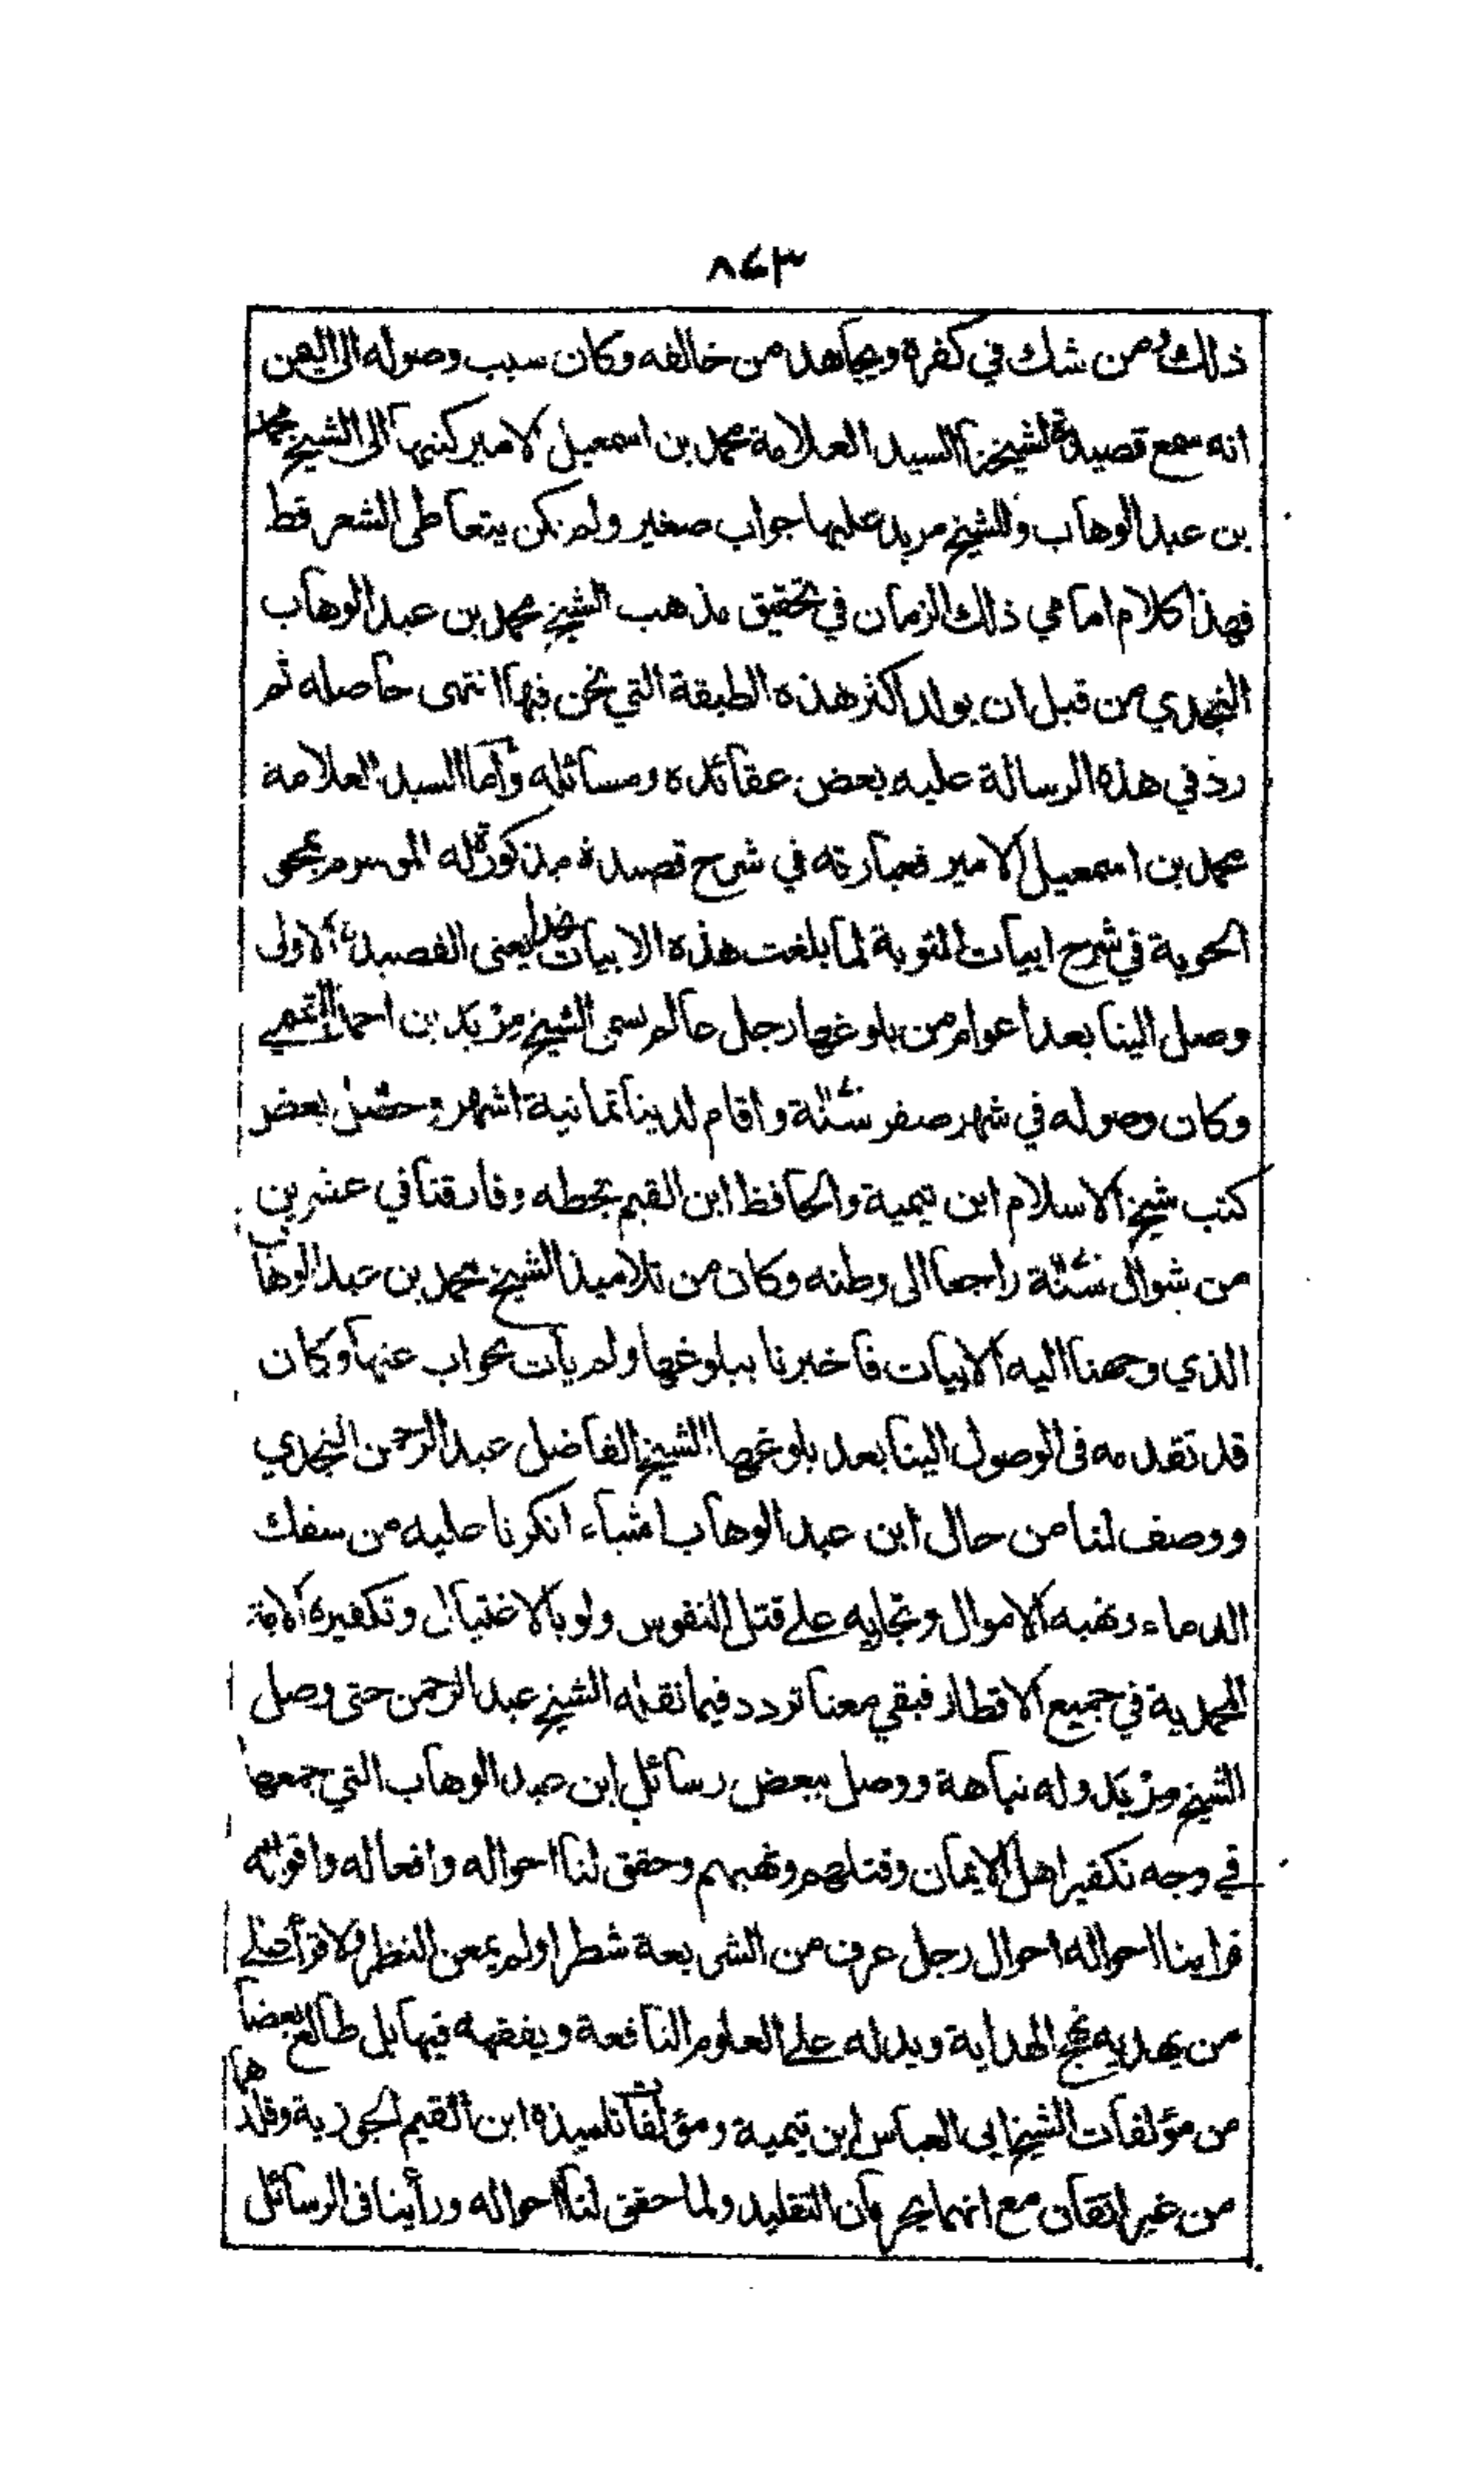 ٨٤٣
ذلك ومن شك في كفره ويجاهد من خالفه وكان سبب وصوله الى اليمن
انه سمع قصيدة لشيخنا السيد العلامة محمد بن اسمعيل الامير كتبها الى الشيخ محمد
بن عبد الوهاب وللشيخ مربد عليها جواب صغير ولم يكن يتعاطى الشعر قط
فهذا كلام امامي ذلك الزمان في تحقيق مذهب الشيخ محمد بن عبد الوهاب
النجدي من قبل ان يولد اكثر هذه الطبقة التي نحن فيها انتهى حاصله ثم
رد في هذه الرسالة عليه بعض عقائده ومسائله واما السيد العلامة
محمد بن اسمعيل الامير فعبارته في شرح قصيدة مذكورة له الموسوم بمحو
الحوبة في شرح ابيات التوبة لما بلغت هذه الابيات نجدا يعني القصيدة الاولى
وصل الينا بعد اعوام من بلوغها رجل عالم يسمى الشيخ مربد بن احمد التميمي
وكان وصوله في شهر صفر سنة واقام لدينا ثمانية اشهر وحصل بعض
كتب شيخ الاسلام ابن تيمية والحافظ ابن القيم بخطه وفارقنا في عشرين
من شوال سنة راجعا الى وطنه وكان من تلاميذ الشيخ محمد بن عبد الوهاب
الذي وجهنا اليه الابيات فاخبرنا ببلوغها ولم يأت بجواب عنها وكان
قد تقدمه في الوصول الينا بعد بلوغها الشيخ الفاضل عبد الرحمن النجدي
ووصف لنا من حال ابن عبد الوهاب اشياء انكرنا عليه من سفك
الدماء ونهبه الاموال وتجاريه على قتل النفوس ولو بالاغتيال وتكفيره الامة
المحمدية في جميع الاقطار فبقي معنا تردد فيما نقله الشيخ عبد الرحمن حتى وصل
الشيخ مربد وله نباهة ووصل ببعض رسائل ابن عبد الوهاب التي جمعها
في وجه تكفير اهل الايمان وقتلهم ونهبهم وحقق لنا احواله وافعاله واقواله
فراينا احواله احوال رجل عرف من الشريعة شطرا ولم يمعن النظر ولا قرأ على
من يهديه نهج الهداية ويدله على العلوم النافعة ويفقهه فيها بل طالع بعضا
من مؤلفات الشيخ ابي العباس ابن تيمية ومؤلفات تلميذه ابن القيم الجوزية وقلدهما
من غير اتقان مع انهما يحرمان التقليد ولما حقق لنا احواله ورأينا في الرسائل